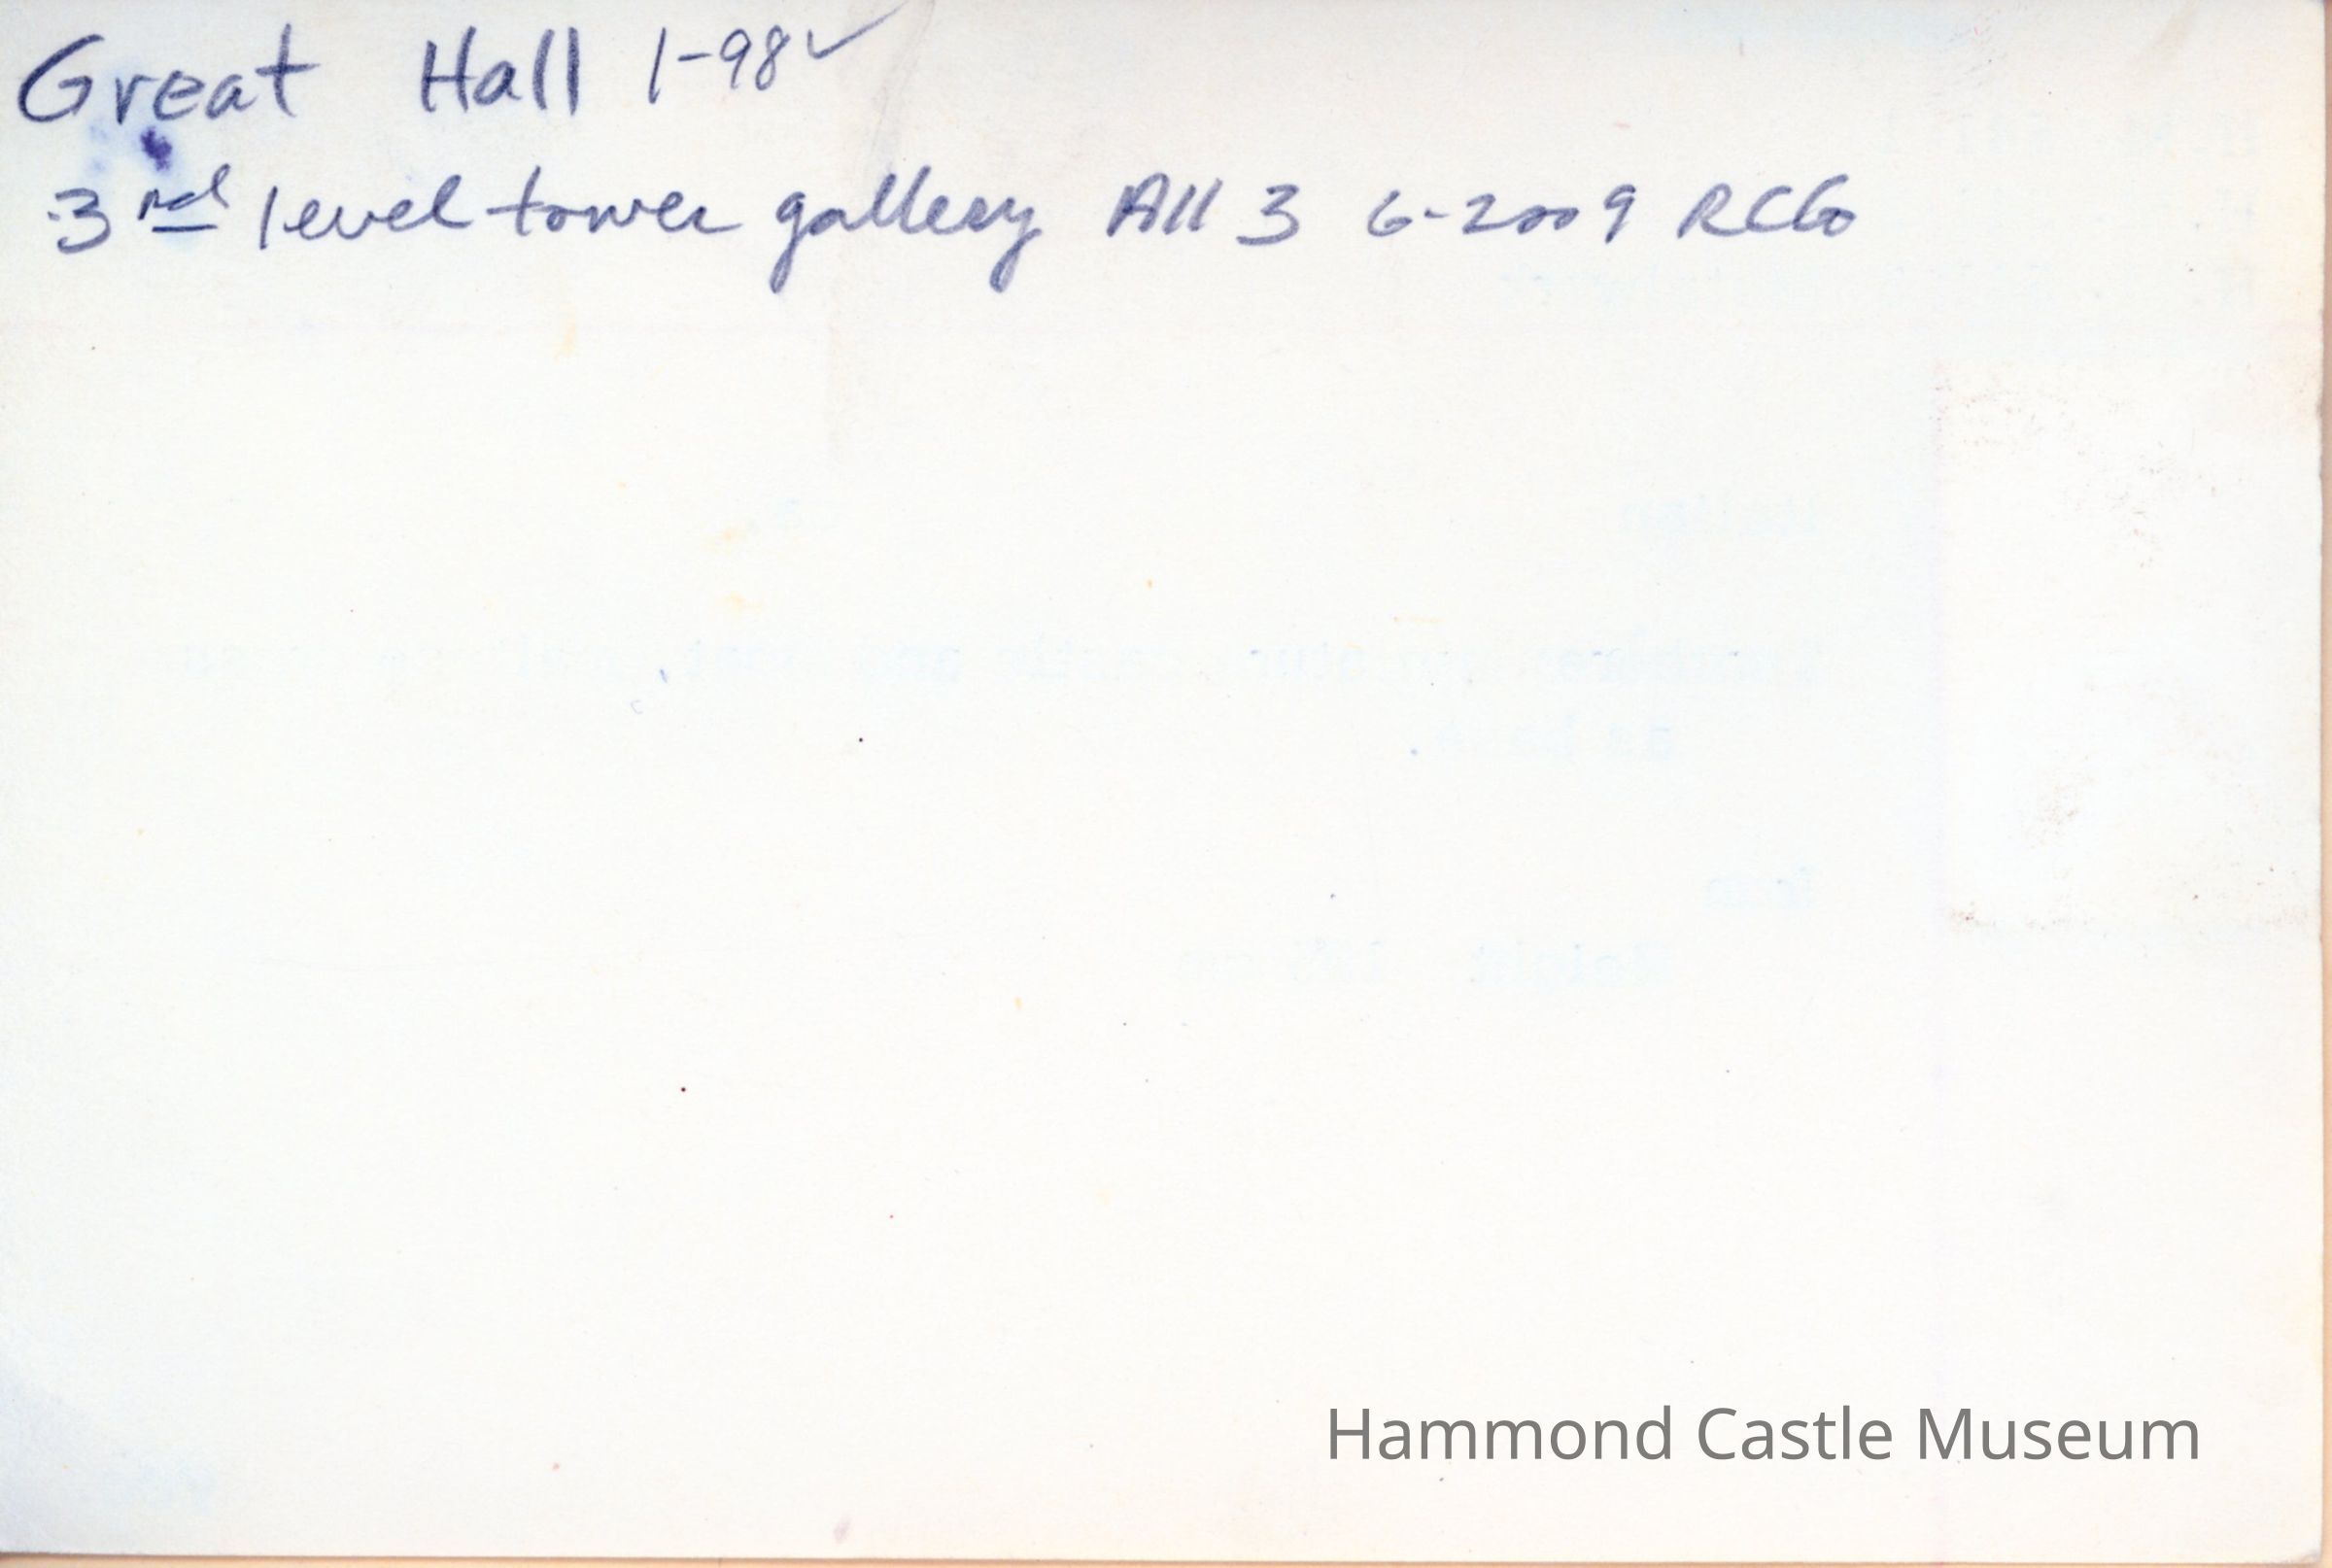 Great Hall 1-98 ✓
3rd level tower gallery All 3 6-2009 RCG
Hammond Castle Museum